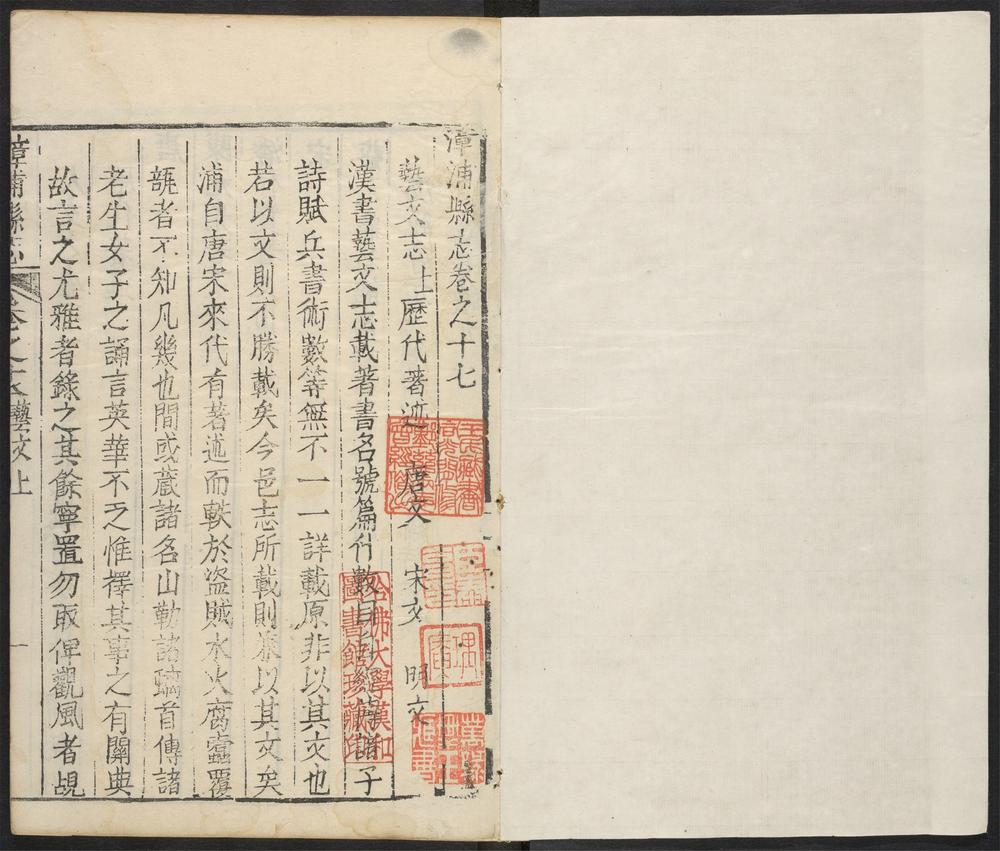 漳浦縣志卷之十七
藝文志上 歷代著述 唐文 宋文 明文
漢書藝文志載著書名號篇什數目 諸子
詩賦兵書術數等無不一一詳載原非以其文也
若以文則不勝載矣今邑志所載則兼以其文矣
浦自唐宋來代有著述而軼於盜賊水火腐蠹覆
瓿者不知凡幾也間或藏諸名山勒諸螭首傳諸
老生女子之誦言英華不乏惟擇其事之有關典
故言之尤雅者錄之其餘寧置勿取俾觀風者覘
漳浦縣志 卷之十 藝文上 一
哈佛大學漢和圖書館珍藏印